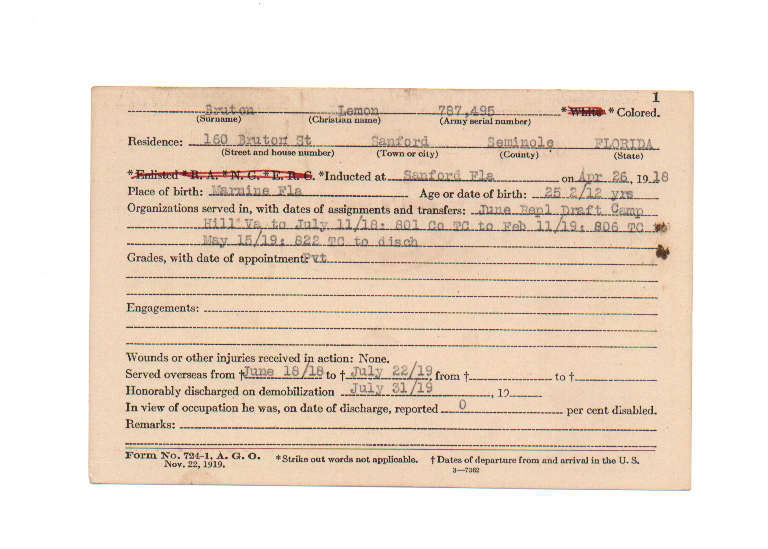 1
Bruton Lemon 787,495 *White *Colored.
(Surname) (Christian name) (Army serial number)
Residence: 160 Bruton St Sanford Seminole FLORIDA
(Street and house number) (Town or city) (County) (State)
*Enlisted *R. A. *N. G. *E. R. C. *Inducted at Sanford Fla on Apr 26, 1918
Place of birth: Marnine Fla Age or date of birth: 25 2/12 yrs
Organizations served in, with dates of assignments and transfers: June Repl Draft Camp
Hill Va to July 11/18; 801 Co TC to Feb 11/19; 806 TC to
May 15/19; 822 TC to disch
Grades, with date of appointment: Pvt
Engagements:
Wounds or other injuries received in action: None.
Served overseas from † June 18/18 to † July 22/19 from † to †
Honorably discharged on demobilization July 31/19, 19
In view of occupation he was, on date of discharge, reported 0 per cent disabled.
Remarks:
Form No. 724-1, A. G. O. *Strike out words not applicable. † Dates of departure from and arrival in the U. S.
Nov. 22, 1919. 3—7362